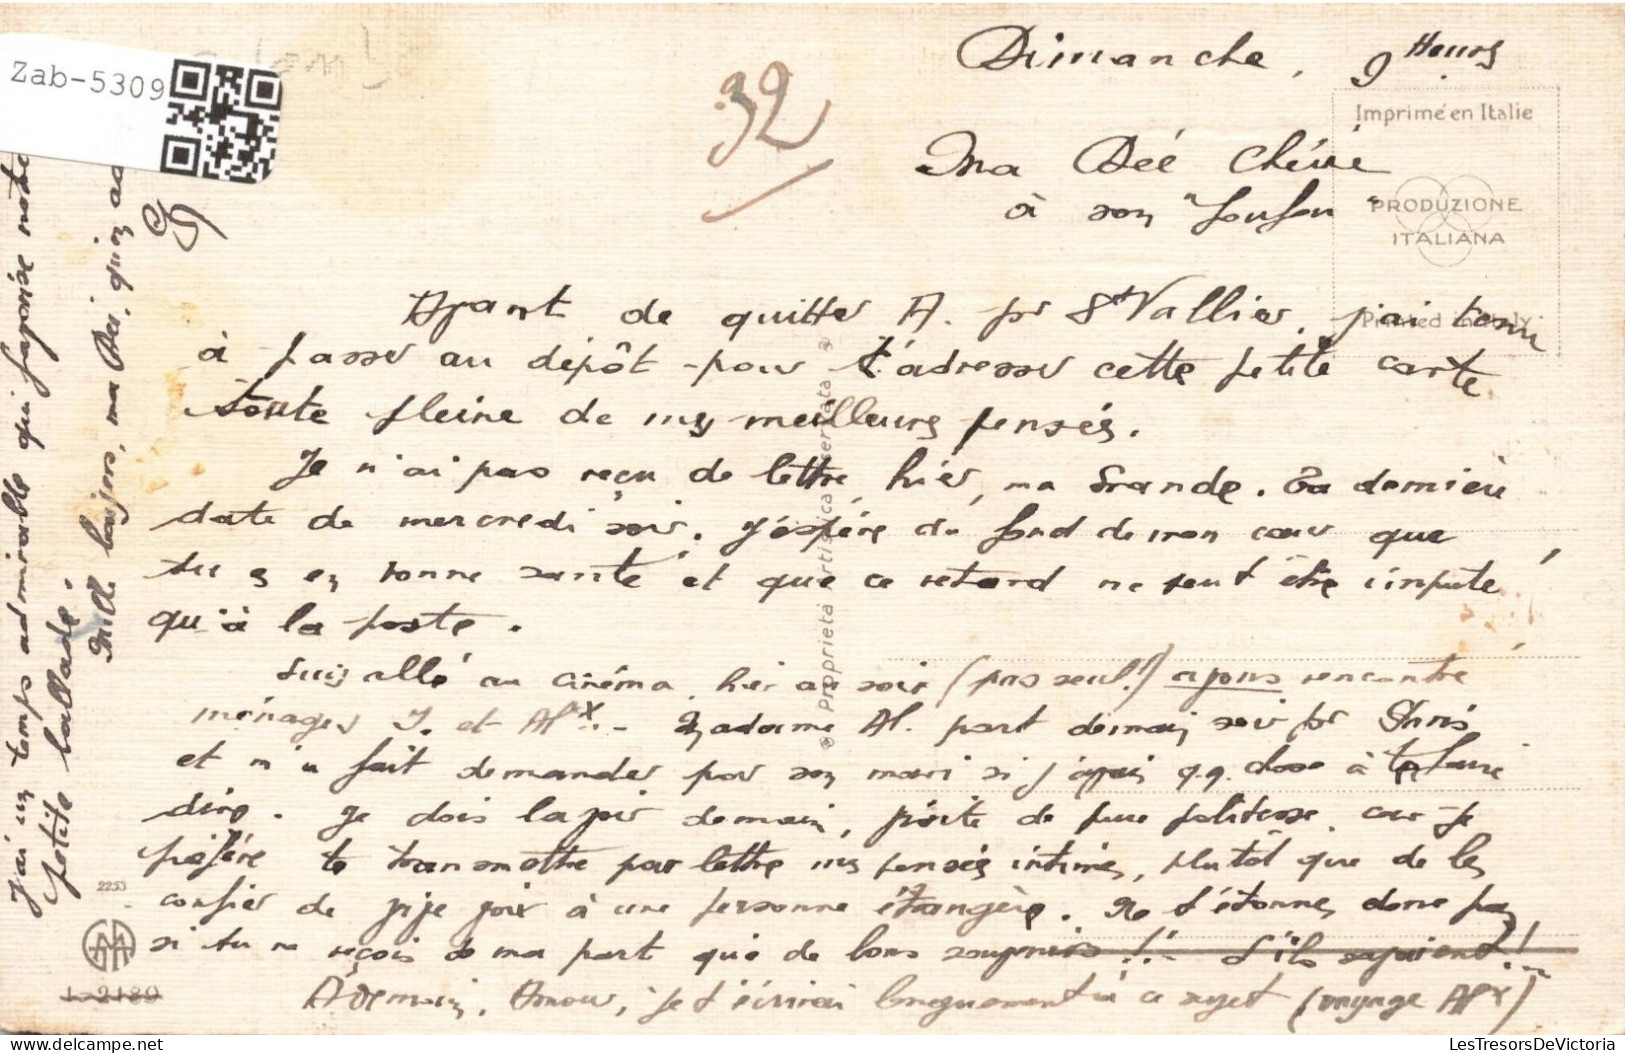 Zab-5309
32
Dimanche, 9 Heures
Imprimé en Italie
Ma Déé Chérie
à son "Loulou"
PRODUZIONE
ITALIANA
Printed in Italy
Avant de quitter A. pr St Vallier, j'ai tenu
à passer au dépôt pour t'adresser cette petite carte
toute pleine de mes meilleurs pensés.
Je n'ai pas reçu de lettre hier, ma Grande. Ta dernière
date de mercredi soir. J'espère du fond de mon cœur que
tu es en bonne santé et que ce retard ne peut être imputé
qu'à la poste.
Suis allé au cinéma, hier au soir (pas seul!) avons rencontré
ménages J. et Alx. - Madame Al. part demain soir pr Paris
et m'a fait demander par son mari si j'avais q.q. chose à te faire
dire. Je dois la voir demain, visite de pure politesse, car je
préfère te transmettre par lettre mes pensées intimes, plutôt que de les
confier de vive voix à une personne étrangère. Ne t'étonnes donc pas
si tu ne reçois de ma part que de bons souvenirs!.. S'ils savaient!
A demain, Amour, je t'écrirai longuement à ce sujet (voyage Alx)
J'ai un temps admirable qui favorise notre
petite ballade.
Mille baisers, ma Déé, qui
© Proprietà Artistica Riservata ©
2253
1-2189
LesTresorsDeVictoria sur Delcampe.net
LesTresorsDeVictoria